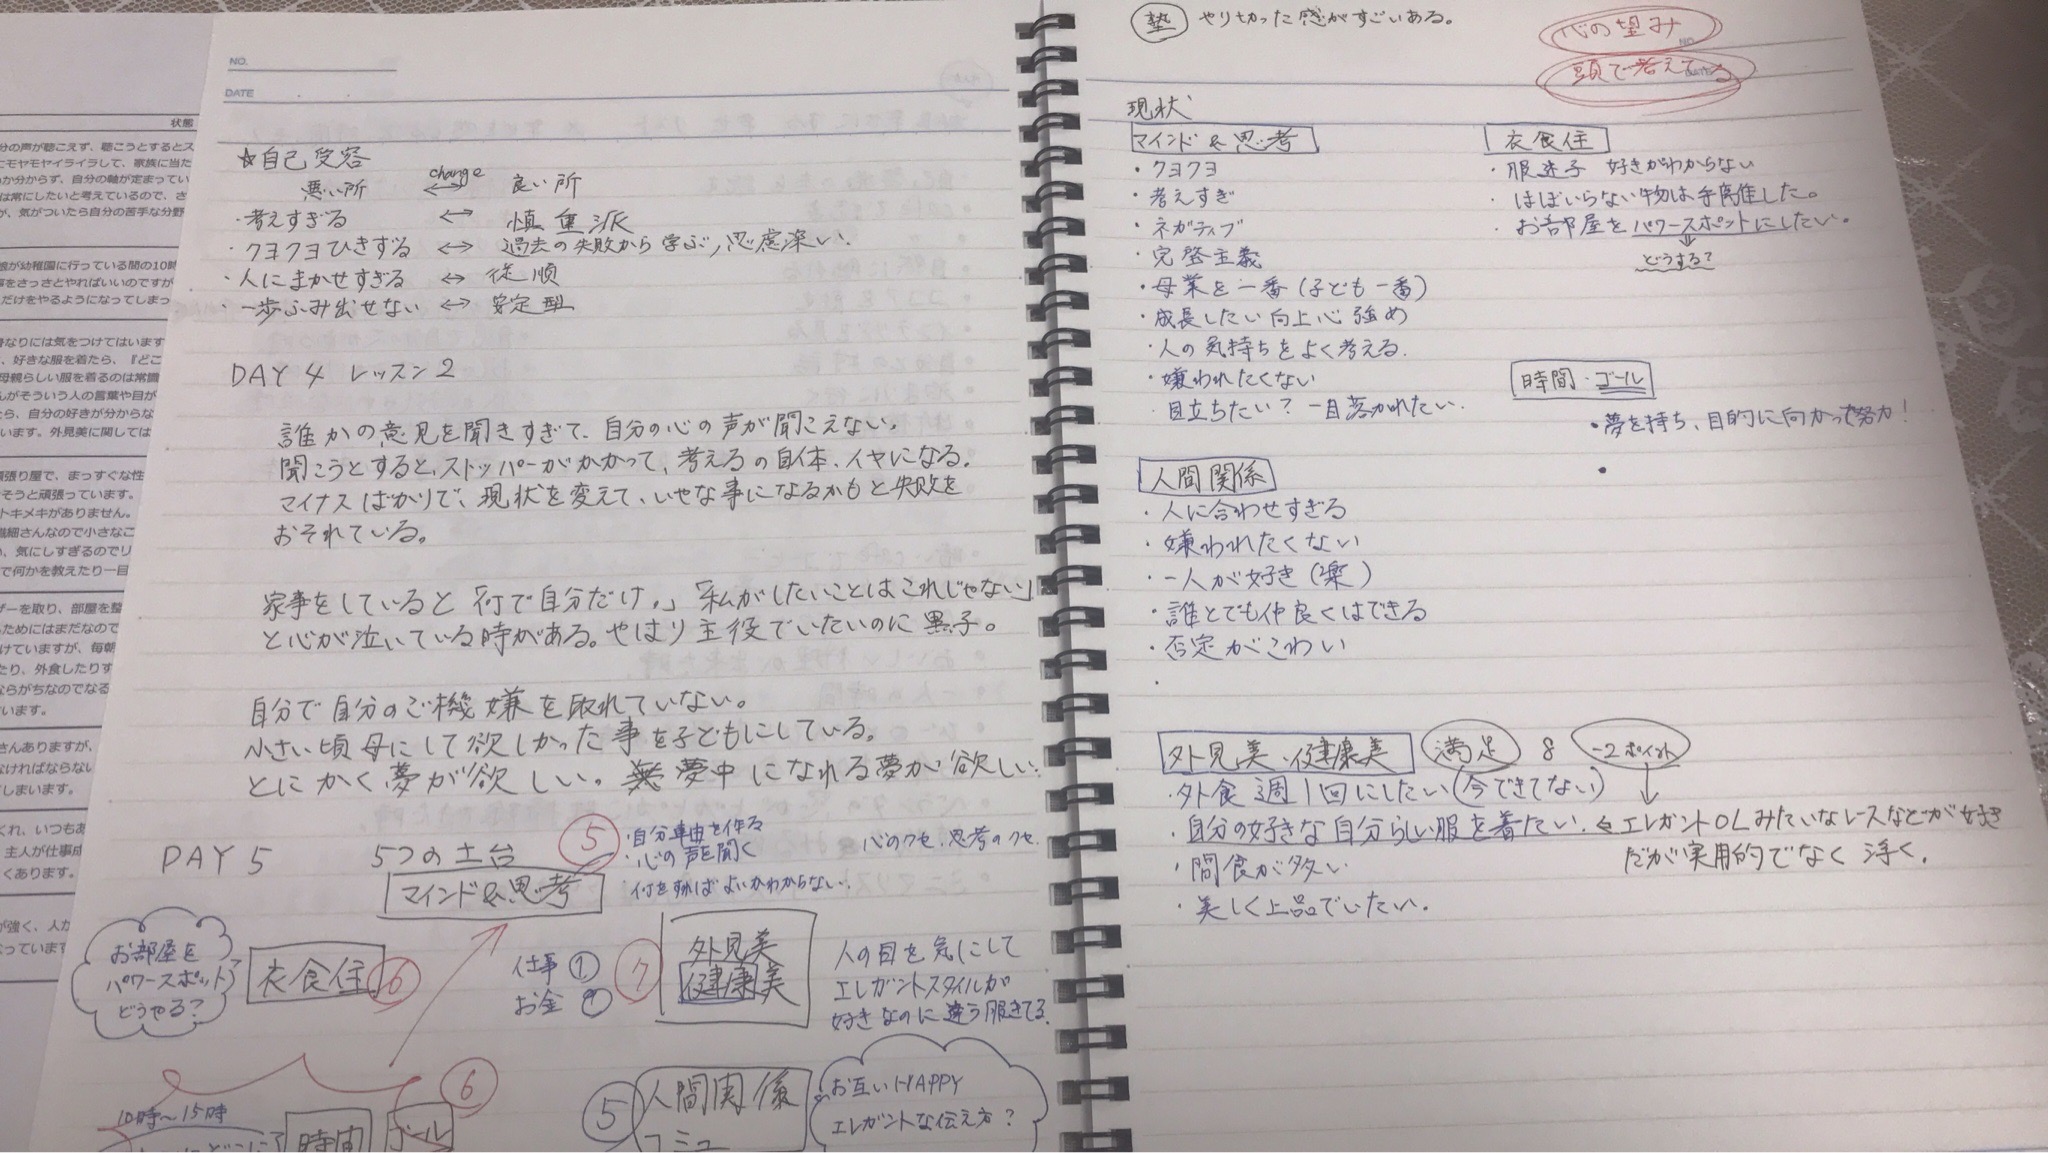 状態
分の声が聴こえず、聴こうとするとス
モヤモヤイライラして、家族に当た
か分からず、自分の軸が定まってい
は常にしたいと考えているので、さ
が、気がついたら自分の苦手な分野
娘が幼稚園に行っている間の10時
事をさっさとやればいいのですが
だけをやるようになってしまっ
身なりには気をつけてはいます
、好きな服を着たら、『どこ
母親らしい服を着るのは常識
んがそういう人の言葉や目が
たら、自分の好きが分からな
います。外見美に関しては
頑張り屋で、まっすぐな性
そうと頑張っています。
トキメキがありません。
繊細さんなので小さなこ
い、気にしすぎるのでリ
で何かを教えたり一目
ザーを取り、部屋を整
ためにはまだなので
けていますが、毎朝
たり、外食したりす
ならがちなのでなる
います。
さんありますが、
なければならない
てしまいます。
くれ、いつもあ
主人が仕事成
くあります。
が強く、人か
なっています
NO.
DATE
☆自己受容
悪い所 change ↔ 良い所
・考えすぎる ↔ 慎重派
・クヨクヨひきずる ↔ 過去の失敗から学ぶ,思慮深い.
・人にまかせすぎる ↔ 従順
・一歩ふみ出せない ↔ 安定型
DAY 4 レッスン2
誰かの意見を聞きすぎて、自分の心の声が聞こえない。
聞こうとすると、ストッパーがかかって、考えるの自体、イヤになる.
マイナスばかりで、現状を変えて、いやな事になるかもと失敗を
おそれている。
家事をしていると「何で自分だけ。」「私がしたいことはこれじゃない」
と心が泣いている時がある。やはり主役でいたいのに黒子。
自分で自分のご機嫌を取れていない。
小さい頃母にして欲しかった事を子どもにしている。
とにかく夢が欲しい。夢中になれる夢が欲しい.
DAY 5 5つの土台
マインド&思考
⑤
・自分軸を作る
・心の声を聞く
・何をすればよいかわからない.
心のクセ、思考のクセ.
お部屋を
パワースポット
どうやる?
衣食住 ⑥
仕事 ①
お金
⑦
外見美
健康美
人の目を気にして
エレガントスタイルが
好きなのに違う服きてる.
10時〜15時
時間
ゴール
⑥
⑤
人間関係
コミュ
お互いHAPPY
エレガントな伝え方?
塾 やり切った感がすごいある。
心の望み
頭で考えている
NO.
DATE
現状
マインド&思考
・クヨクヨ
・考えすぎ
・ネガティブ
・完璧主義
・母業を一番(子ども一番)
・成長したい向上心強め
・人の気持ちをよく考える.
・嫌われたくない
・目立ちたい?一目置かれたい.
衣食住
・服迷子 好きがわからない
・ほぼいらない物は手離した。
・お部屋をパワースポットにしたい。
どうする?
時間・ゴール
・夢を持ち、目的に向かって努力!
・
人間関係
・人に合わせすぎる
・嫌われたくない
・一人が好き(楽)
・誰とでも仲良くはできる
・否定がこわい
・
外見美・健康美 満足 8 -2ポイント
・外食週1回にしたい(今できてない)
・自分の好きな自分らしい服を着たい. ← エレガントOLみたいなレースなどが好き
だが実用的でなく浮く.
・間食が多い
・美しく上品でいたい.